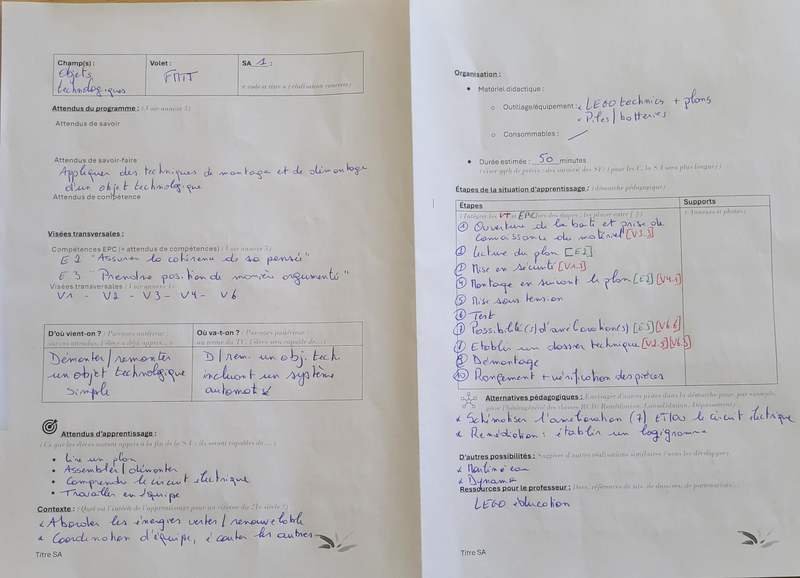 Champ(s) :
Objets
technologiques
Volet :
FMTT
SA 1 :
« code et titre » (réalisation concrète)
Attendus du programme : (Voir annexe 3)
Attendus de savoir
Attendus de savoir-faire
Appliquer des techniques de montage et de démontage
d'un objet technologique
Attendus de compétence
Visées transversales :
Compétences EPC (+ attendus de compétences) (Voir annexe 5)
E2 "Assurer la cohérence de sa pensée"
E3 "Prendre position de manière argumentée"
Visées transversales (Voir annexe 1)
V1 - V2 - V3 - V4 - V6
D'où vient-on ? (Parcours antérieur :
sur ces attendus, l'élève a déjà appris...)
Démonter/remonter
un objet technologique
simple
Où va-t-on ? (Parcours postérieur :
au terme du TC, l'élève sera capable de...)
D/rem. un obj. tech.
incluant un système
automatisé
Attendus d'apprentissage :
(Ce que les élèves auront appris à la fin de la SA : ils seront capables de ...)
• Lire un plan
• Assembler/démonter
• Comprendre le circuit électrique
• Travailler en équipe
Contexte : (Quel est l'intérêt de l'apprentissage pour un citoyen du 21e siècle ?)
* Aborder les énergies vertes/renouvelable
* Coordination d'équipe, écouter les autres
Titre SA
Organisation :
• Matériel didactique :
o Outillage/équipement : * LEGO technics + plans
* Piles/batteries
o Consommables : /
• Durée estimée : 50 minutes
Étapes de la situation d'apprentissage : (démarche pédagogique)
Étapes
Supports
(Intégrer les VT et EPC lors des étapes : les placer entre [ ])
(Annexes et photos)
① Ouverture de la boîte et prise de
connaissance du matériel [V3.3]
② Lecture du plan [E2]
③ Mise en sécurité [V1.3]
④ Montage en suivant le plan [E2] [V4.1]
⑤ Mise sous tension
⑥ Test
⑦ Possibilité(s) d'amélioration(s) [E3] [V6.6]
⑧ Etablir un dossier technique [V2.5] [V6.5]
⑨ Démontage
⑩ Rangement + vérification des pièces
Alternatives pédagogiques : (Envisager d'autres pistes dans la démarche pour, par exemple,
gérer l'hétérogénéité des classes RCD : Remédiation, Consolidation, Dépassement)
* Schématiser l'amélioration (7) ET/OU le circuit électrique
* Remédiation : établir un logigramme
D'autres possibilités : (Suggérer d'autres réalisations similaires / sans les développer)
* Moulin à eau
* Dynamo
Ressources pour le professeur : (Liens, références de site, de dossiers, de partenariats...)
LEGO éducation
Titre SA